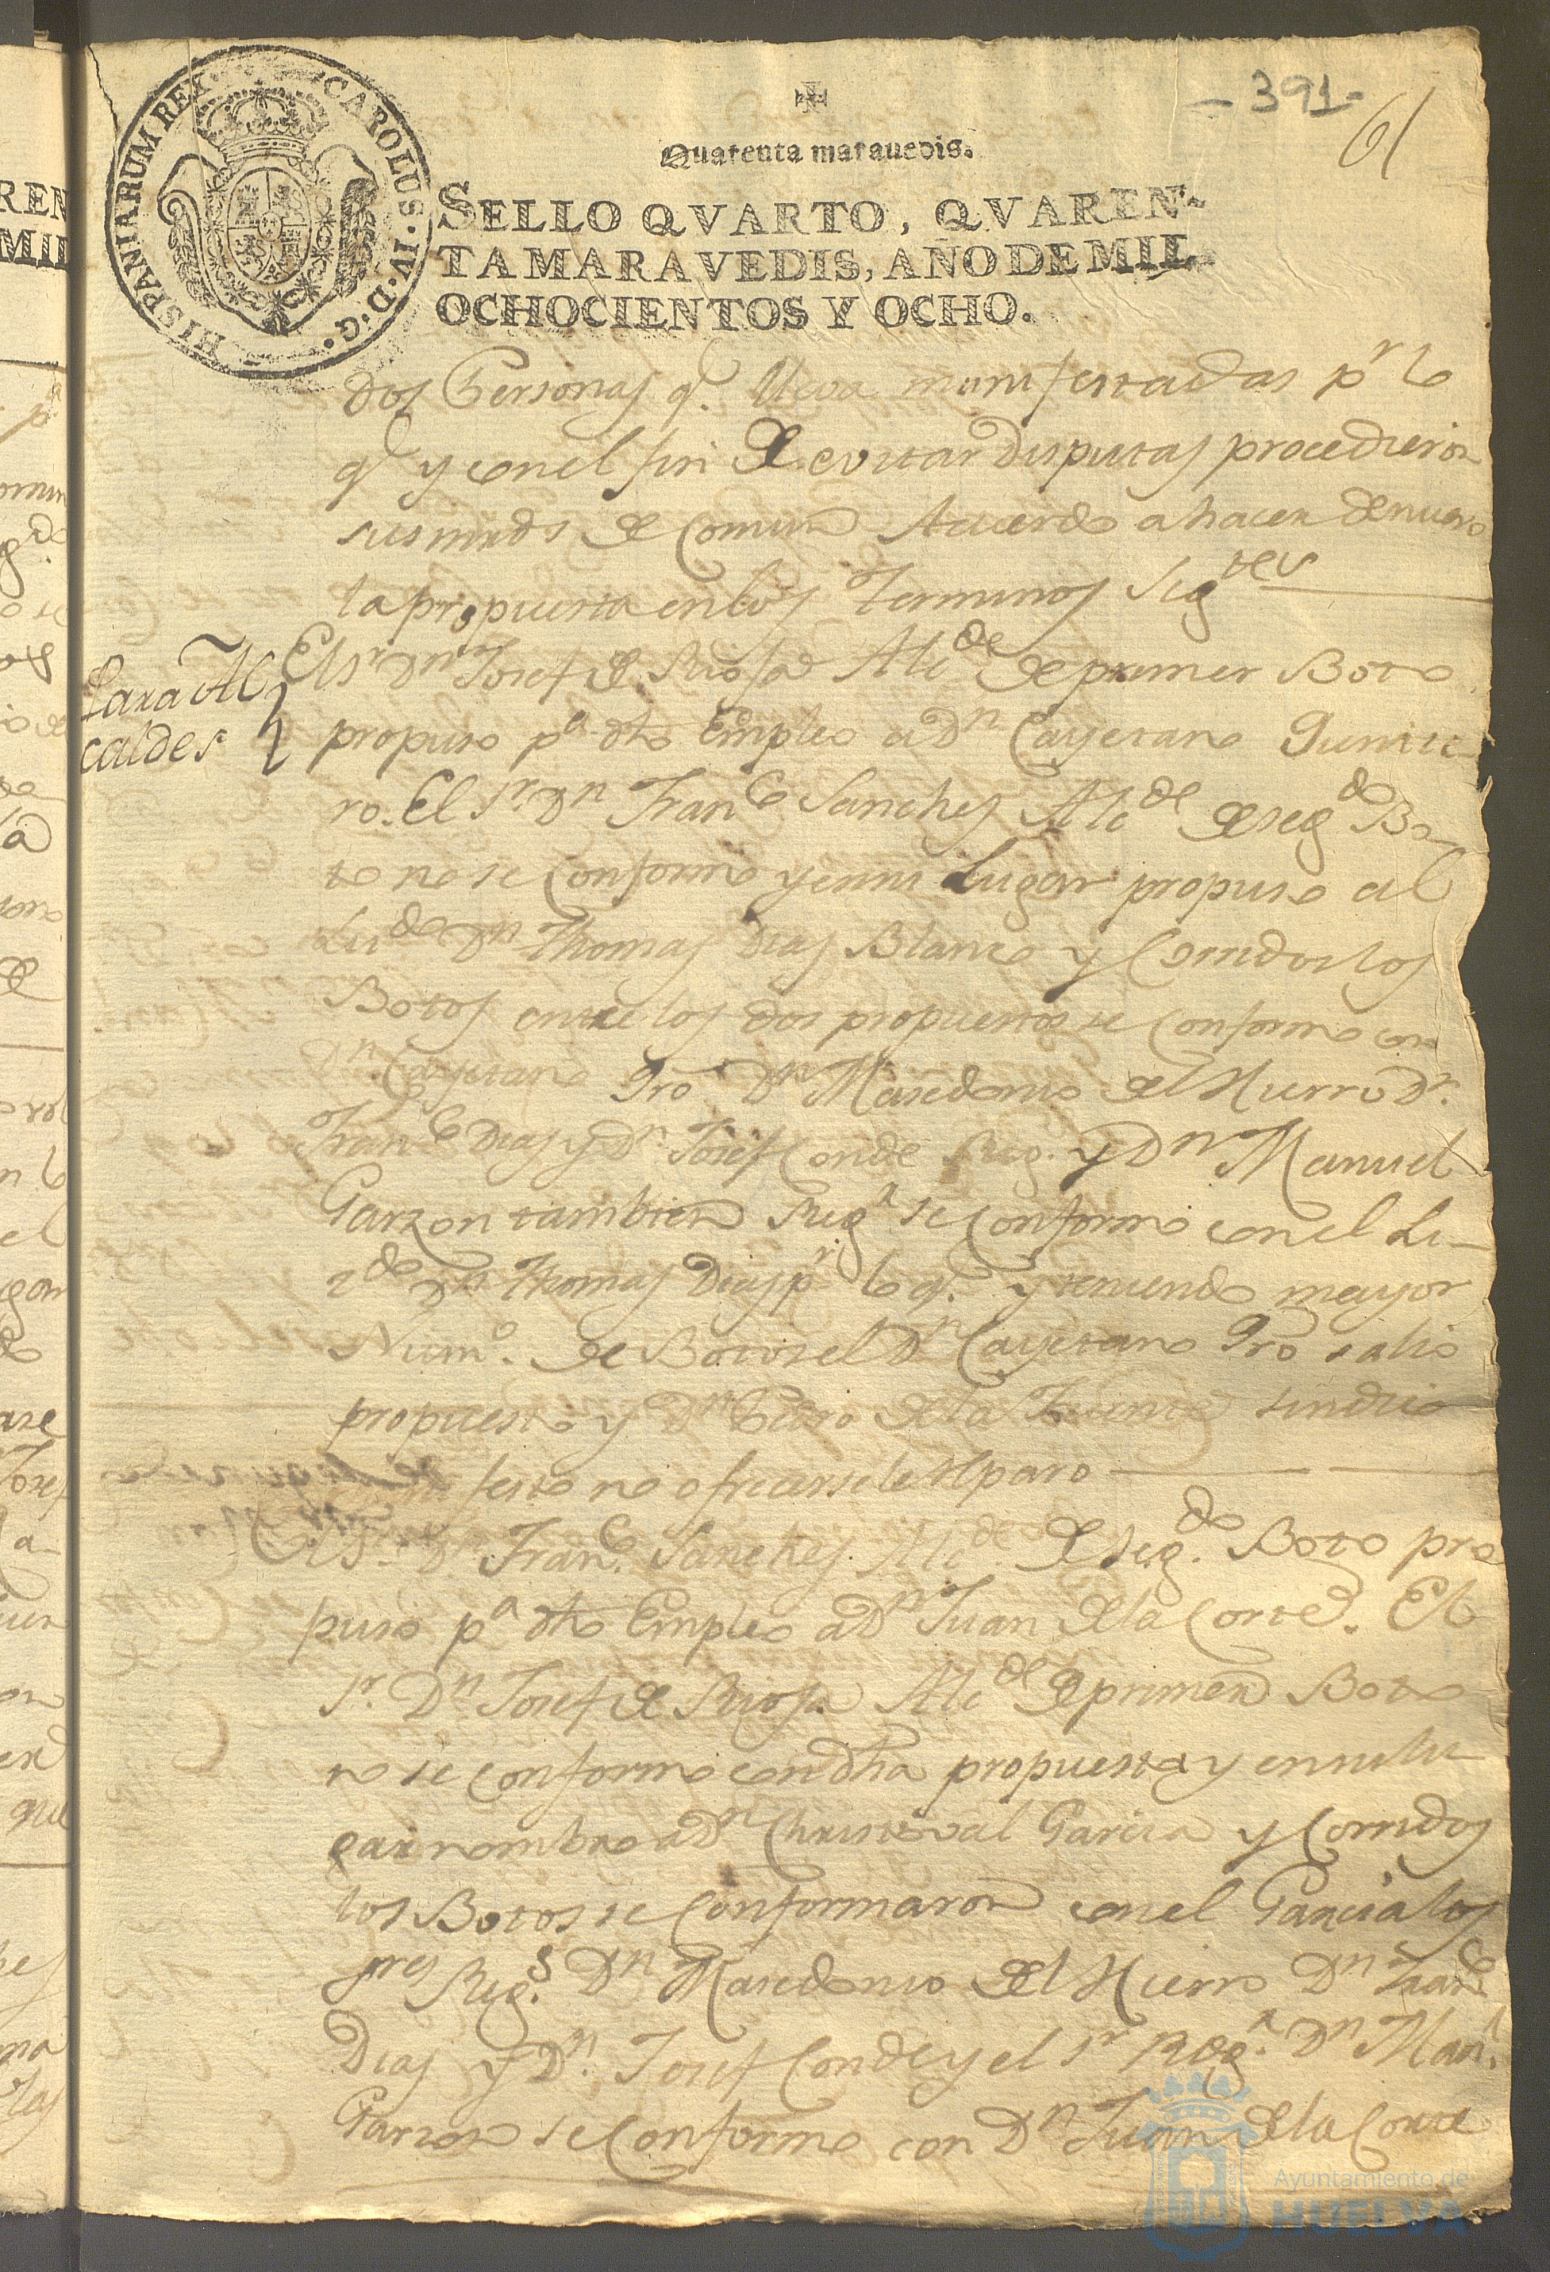 HISPANIARUM REX. CAROLUS. IV. D. G.
- 391 -
61
Quarenta maravedis.
SELLO QVARTO, QVAREN-
TAMARAVEDIS, AÑO DE MIL
OCHOCIENTOS Y OCHO.
dos Personas q.e lleva manifestadas p.r lo
q.e y con el fin de evitar disputas procedieron
sus mrds de comun Acuerdo a hacer de nuevo
la propuesta en los Terminos sig.tes
Para Al
caldes
El S.r D.n Josef de Rioja Alc.de de primer Boto
propuso p.a dho Empleo a D.n Cayetano Quinte
ro. El S.r D.n Fran.co Sanches Alc.de de seg.do Bo
to no se conformo y en su Lugar propuso al
Lis.do D.n Thomas Dias Blanco y corridos los
Botos entre los dos propuestos se conformo con
D.n Cayetano Qro D.n Masedonio del Hierro D.n
Fran.co Dias y D.n Josef Conde Reg. y D.n Manuel
Garzon tambien Reg.r se conformo con el Li-
z.do D.n Thomas Dias p.r lo q.e y teniendo mayor
Num.o de Botos el D.n Cayetano Qro salio
propuesto y D.n Pedro de la Fuente sindico
festo no ofrecersele Reparo
El S.r D.n Fran.co Sanches Alc.de de seg.do Boto pro
puso p.a dho Empleo a D.n Juan de la Corte. El
S.r D.n Josef de Rioja Alc.de de primer Boto
no se conformo con dha propuesta y en su lu
gar nombro a D.n Christoval Garcia y corridos
los Botos se conformaron con el Garcia los
sres Reg.s D.n Masedonio del Hierro D.n Fran.co
Dias y D.n Josef Conde y el S.r Reg.r D.n Man.l
Garzon se conformo con D.n Juan de la Corte
Ayuntamiento de
HUELVA